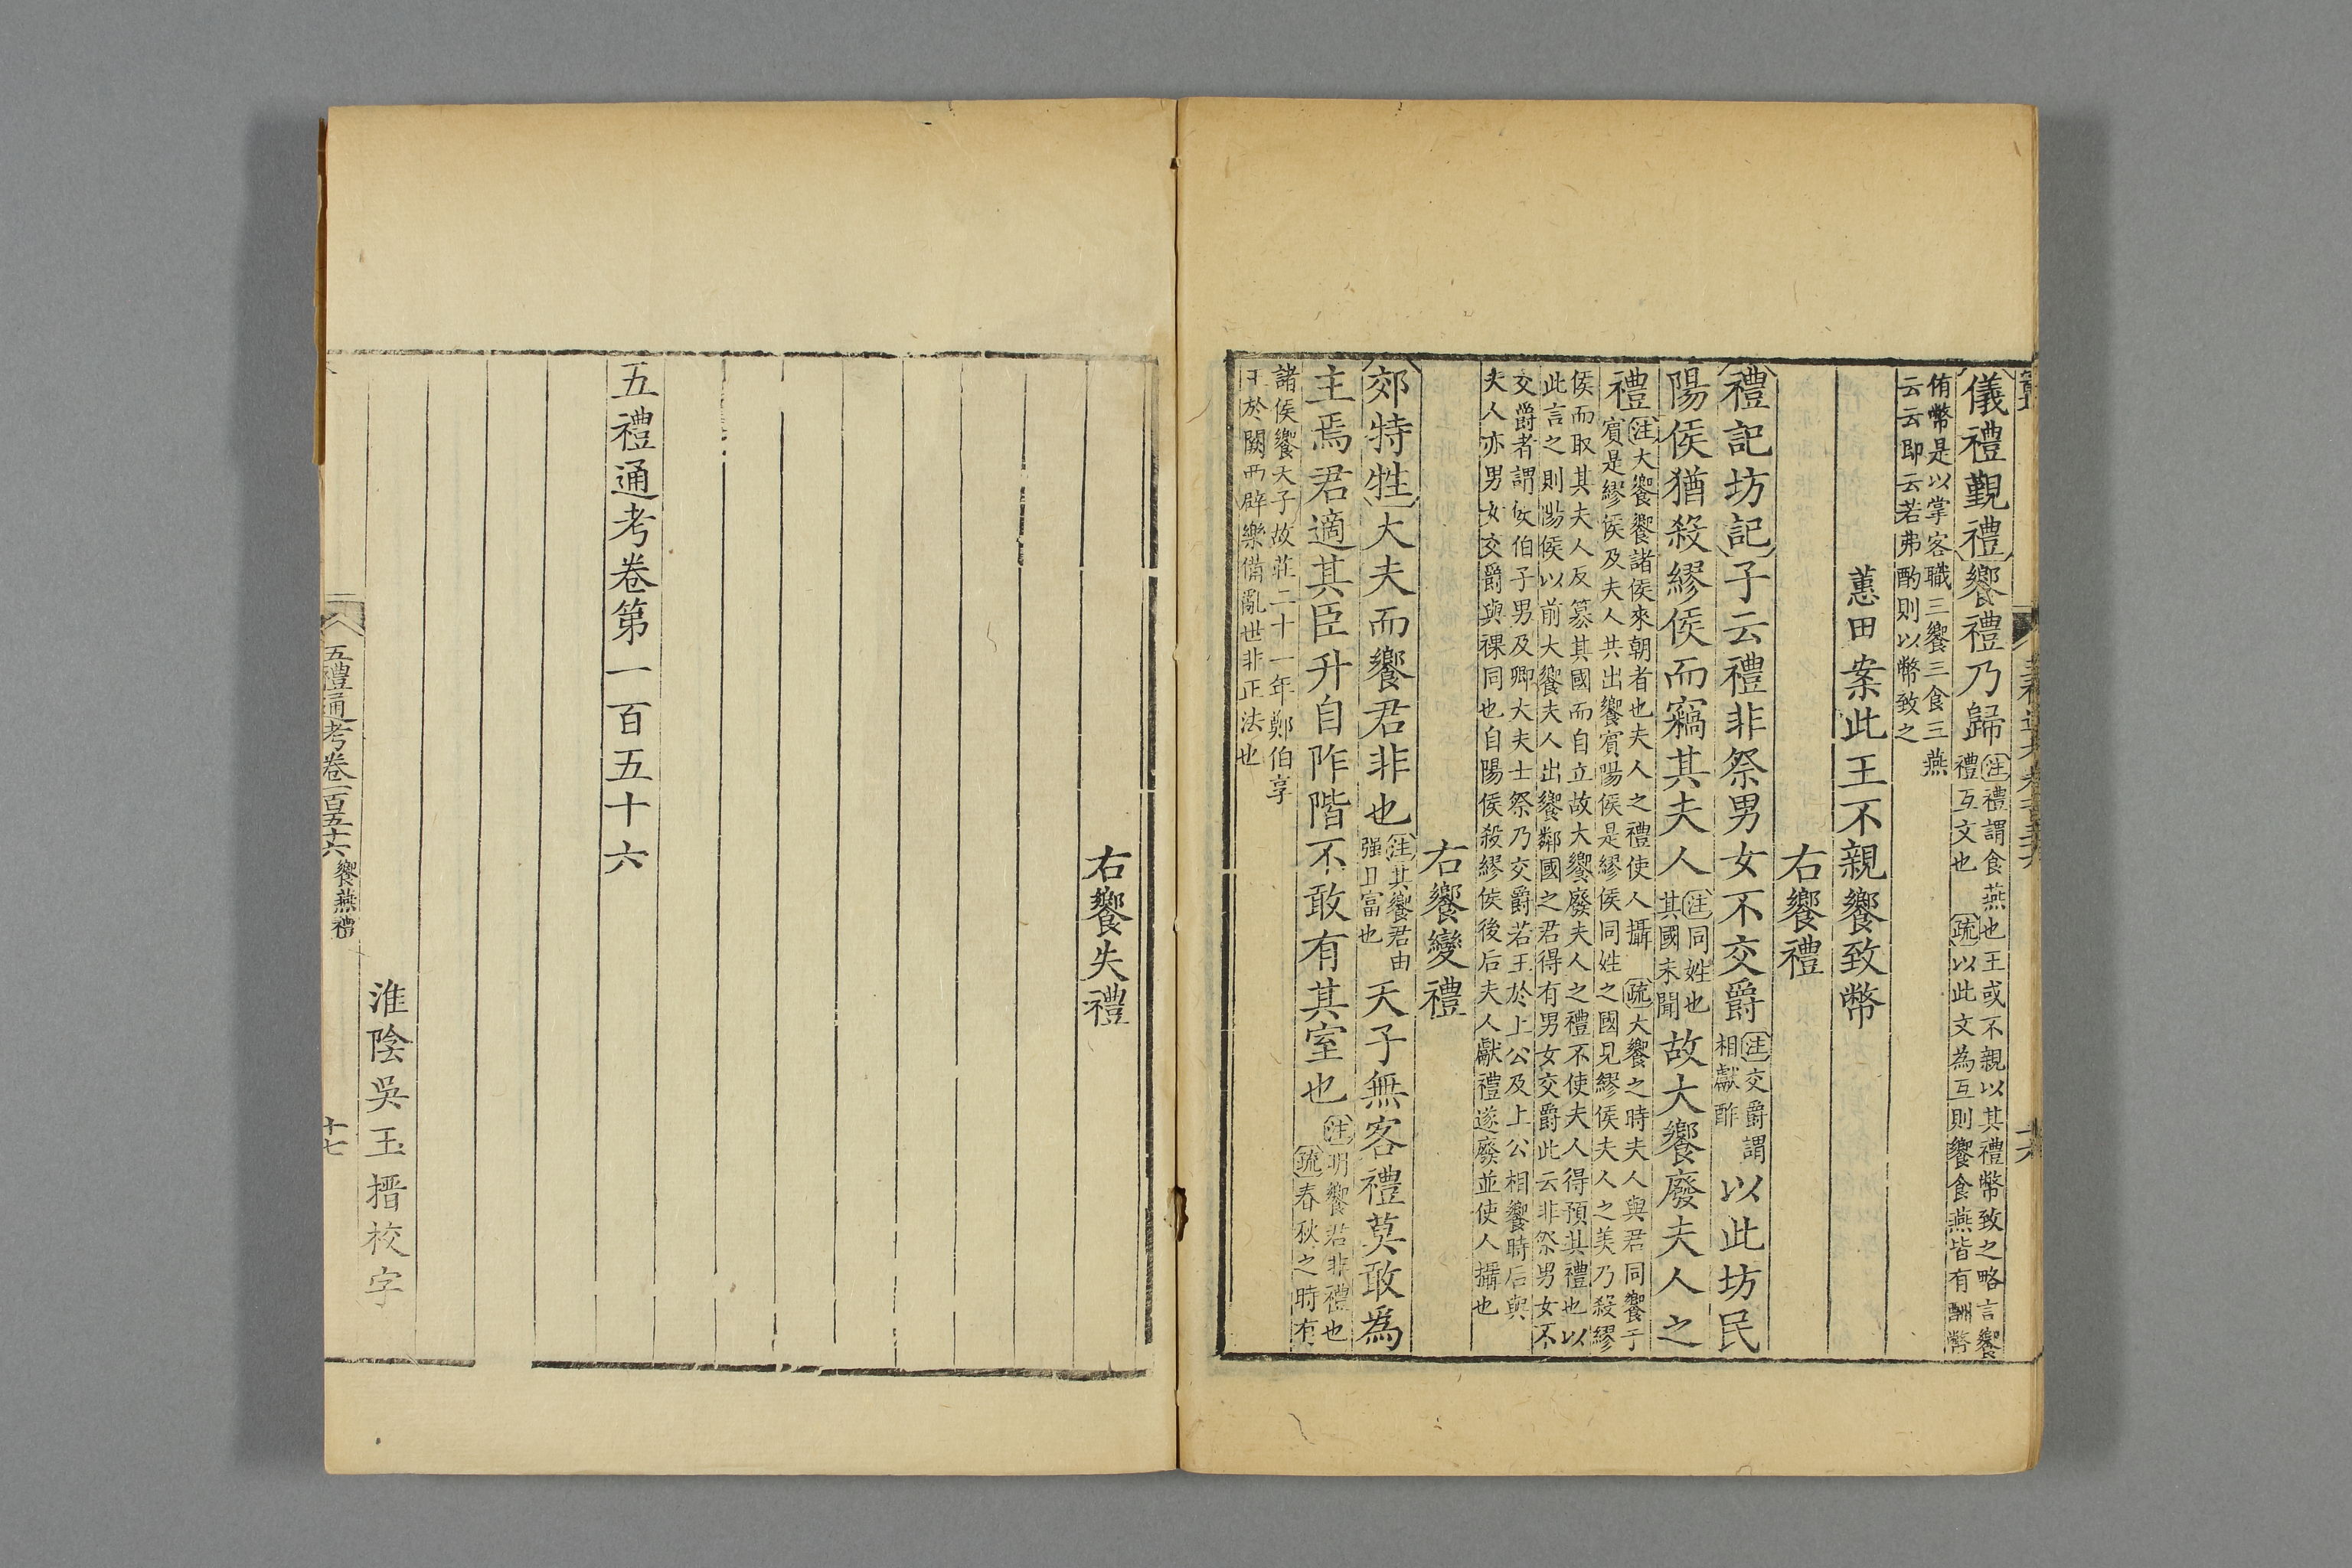 儀禮覲禮饗禮乃歸注禮謂食燕也王或不親以其禮幣致之略言饗
禮互文也 疏以此文為互則饗食燕皆有酬幣
侑幣是以掌客職三饗三食三燕
云云即云若弗酌則以幣致之
蕙田案此王不親饗致幣
右饗禮
禮記坊記子云禮非祭男女不交爵注交爵謂
相獻酢以此坊民
陽侯猶殺繆侯而竊其夫人注同姓也
其國未聞故大饗廢夫人之
禮注大饗饗諸侯來朝者也夫人之禮使人攝 疏大饗之時夫人與君同饗于
賓是繆侯及夫人共出饗賓陽侯是繆侯同姓之國見繆侯夫人之美乃殺繆
侯而取其夫人反篡其國而自立故大饗廢夫人之禮不使夫人得預其禮也以
此言之則陽侯以前大饗夫人出饗鄰國之君得有男女交爵此云非祭男女不
交爵者謂侯伯子男及卿大夫士祭乃交爵若王於上公及上公相饗時后與
夫人亦男女交爵與祼同也自陽侯殺繆侯後后夫人獻禮遂廢並使人攝也
右饗變禮
郊特牲大夫而饗君非也注其饗君由
强且富也天子無客禮莫敢為
主焉君適其臣升自阼階不敢有其室也注明饗君非禮也
疏春秋之時有
諸侯饗天子故莊二十一年鄭伯享
王於闕西辟樂備亂世非正法也
右饗失禮
五禮通考卷第一百五十六
淮陰吳玉搢校字
五禮通考卷一百五十六 饗燕禮
十七